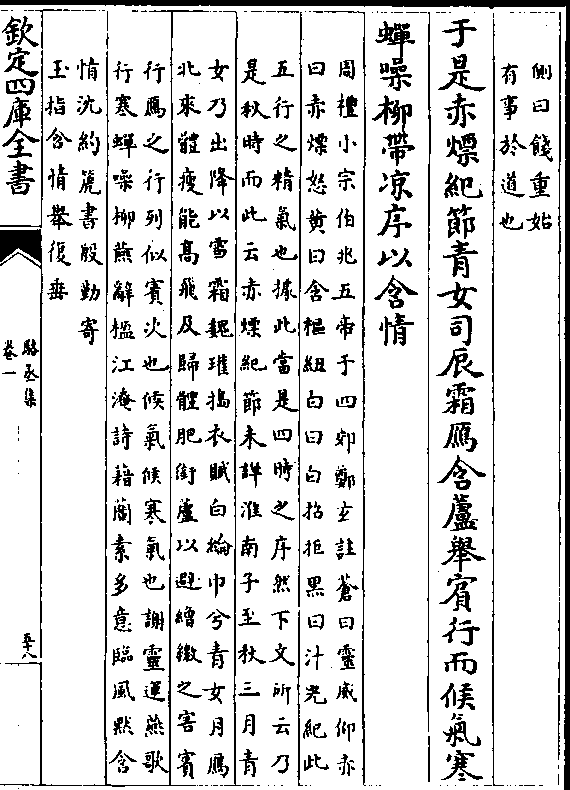 側曰餞重始
有事於道也
于是赤熛紀節青女司辰霜鴈含蘆舉賓行而候氣寒
蟬噪柳帶凉序以含情
周禮小宗伯兆五帝于四郊鄭玄註蒼曰靈威仰赤
曰赤熛怒黄曰含樞紐白曰白招拒黒曰汁光紀此
五行之精氣也據此當是四時之序然下文所云乃
是秋時而此云赤熛紀節未詳淮南子至秋三月青
女乃出降以雪霜魏璀擣衣賦白綸巾兮青女月鴈
北來體瘦能高飛及歸體肥銜蘆以避繒繳之害賓
行鴈之行列似賓次也候氣候寒氣也謝靈運燕歌
行寒蟬噪柳燕辭楹江淹詩藉蘭素多意臨風默含
情沈約麗書殷勤寄
玉指含情舉復垂
欽定四庫全書
駱丞集
卷一
五十八